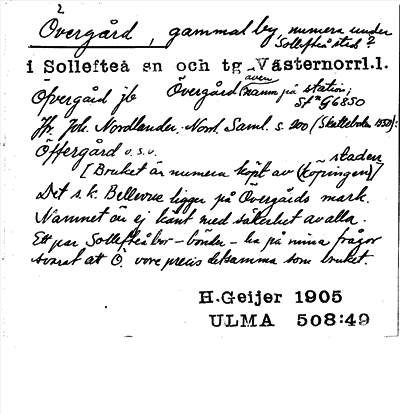 2
Övergård, gammal by, numera under
Sollefteå stad?
i Sollefteå sn och tg Västernorrl.l.
även
Öfvergård jb Övergård namn på station;
Sf*G6850
Jfr. Joh. Nordlander. Norrl. Saml. s. 200 (Skatteboken 1550):
Öffergård o.s.v. staden
[Bruket är numera köpt av (köpingen)/
Det s.k. Bellevue ligger på Övergårds mark.
Namnet är ej känt med säkerhet av alla.
Ett par Sollefteåbor – bönder – ha på mina frågor
svarat att Ö. vore precis detsamma som bruket.
H.Geijer 1905
ULMA 508:49